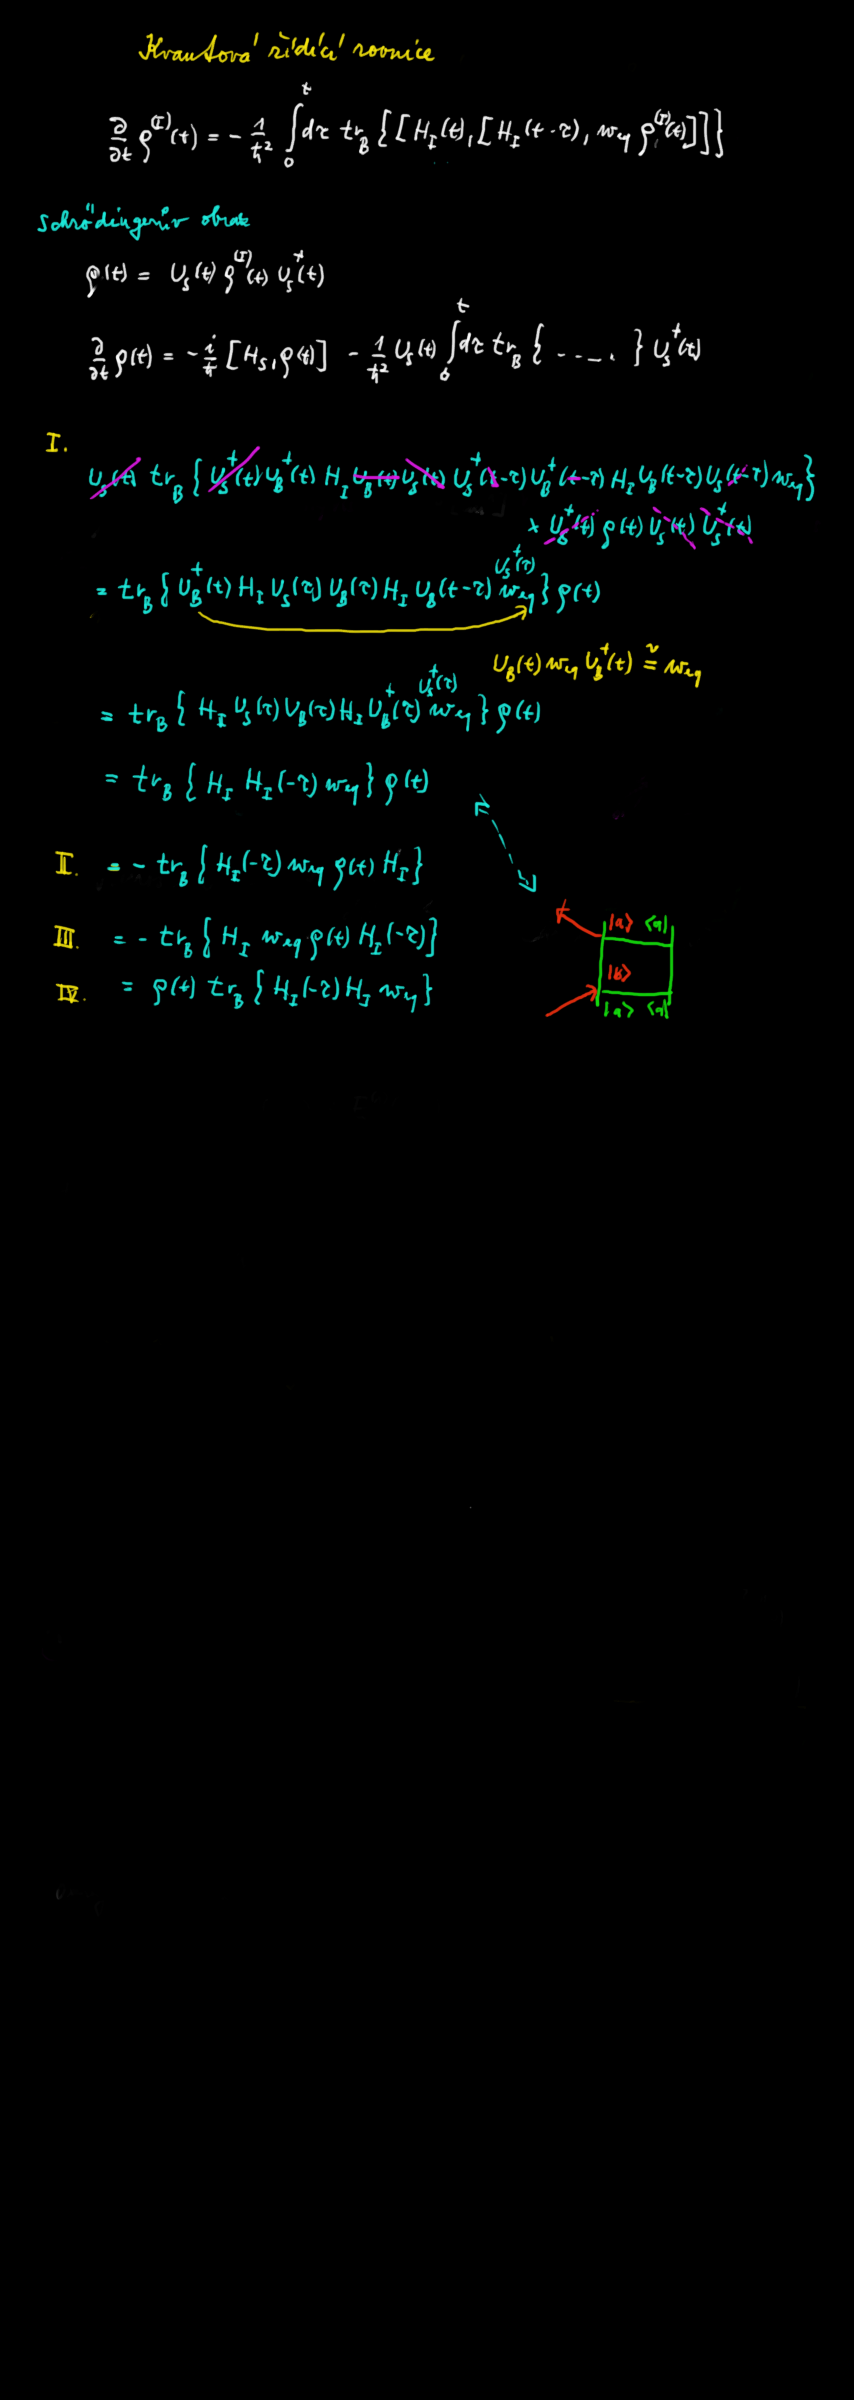 Kvantová řídící rovnice
∂/∂t ρ^(I)(t) = - 1/ħ² ∫₀ᵗ dτ tr_B { [ H_I(t), [ H_I(t-τ), w_eq ρ^(I)(t) ] ] }
Schrödingerův obraz
ρ(t) = U_S(t) ρ^(I)(t) U_S⁺(t)
∂/∂t ρ(t) = - i/ħ [ H_S, ρ(t) ] - 1/ħ² U_S(t) ∫₀ᵗ dτ tr_B { ..... } U_S⁺(t)
I.
U_S(t) tr_B { U_S⁺(t) U_B⁺(t) H_I U_B(t) U_S(t) U_S⁺(t-τ) U_B⁺(t-τ) H_I U_B(t-τ) U_S(t-τ) w_eq }
× U_S⁺(t) ρ(t) U_S(t) U_S⁺(t)
= tr_B { U_B⁺(t) H_I U_S(τ) U_B(τ) H_I U_B(t-τ) U_S⁺(τ) w_eq } ρ(t)
U_B(t) w_eq U_B⁺(t) ≅ w_eq
= tr_B { H_I U_S(τ) U_B(τ) H_I U_B⁺(τ) U_S⁺(τ) w_eq } ρ(t)
= tr_B { H_I H_I(-τ) w_eq } ρ(t)
II. = - tr_B { H_I(-τ) w_eq ρ(t) H_I }
III. = - tr_B { H_I w_eq ρ(t) H_I(-τ) }
IV. = ρ(t) tr_B { H_I(-τ) H_I w_eq }
|a> <a|
|b>
|a> <a|